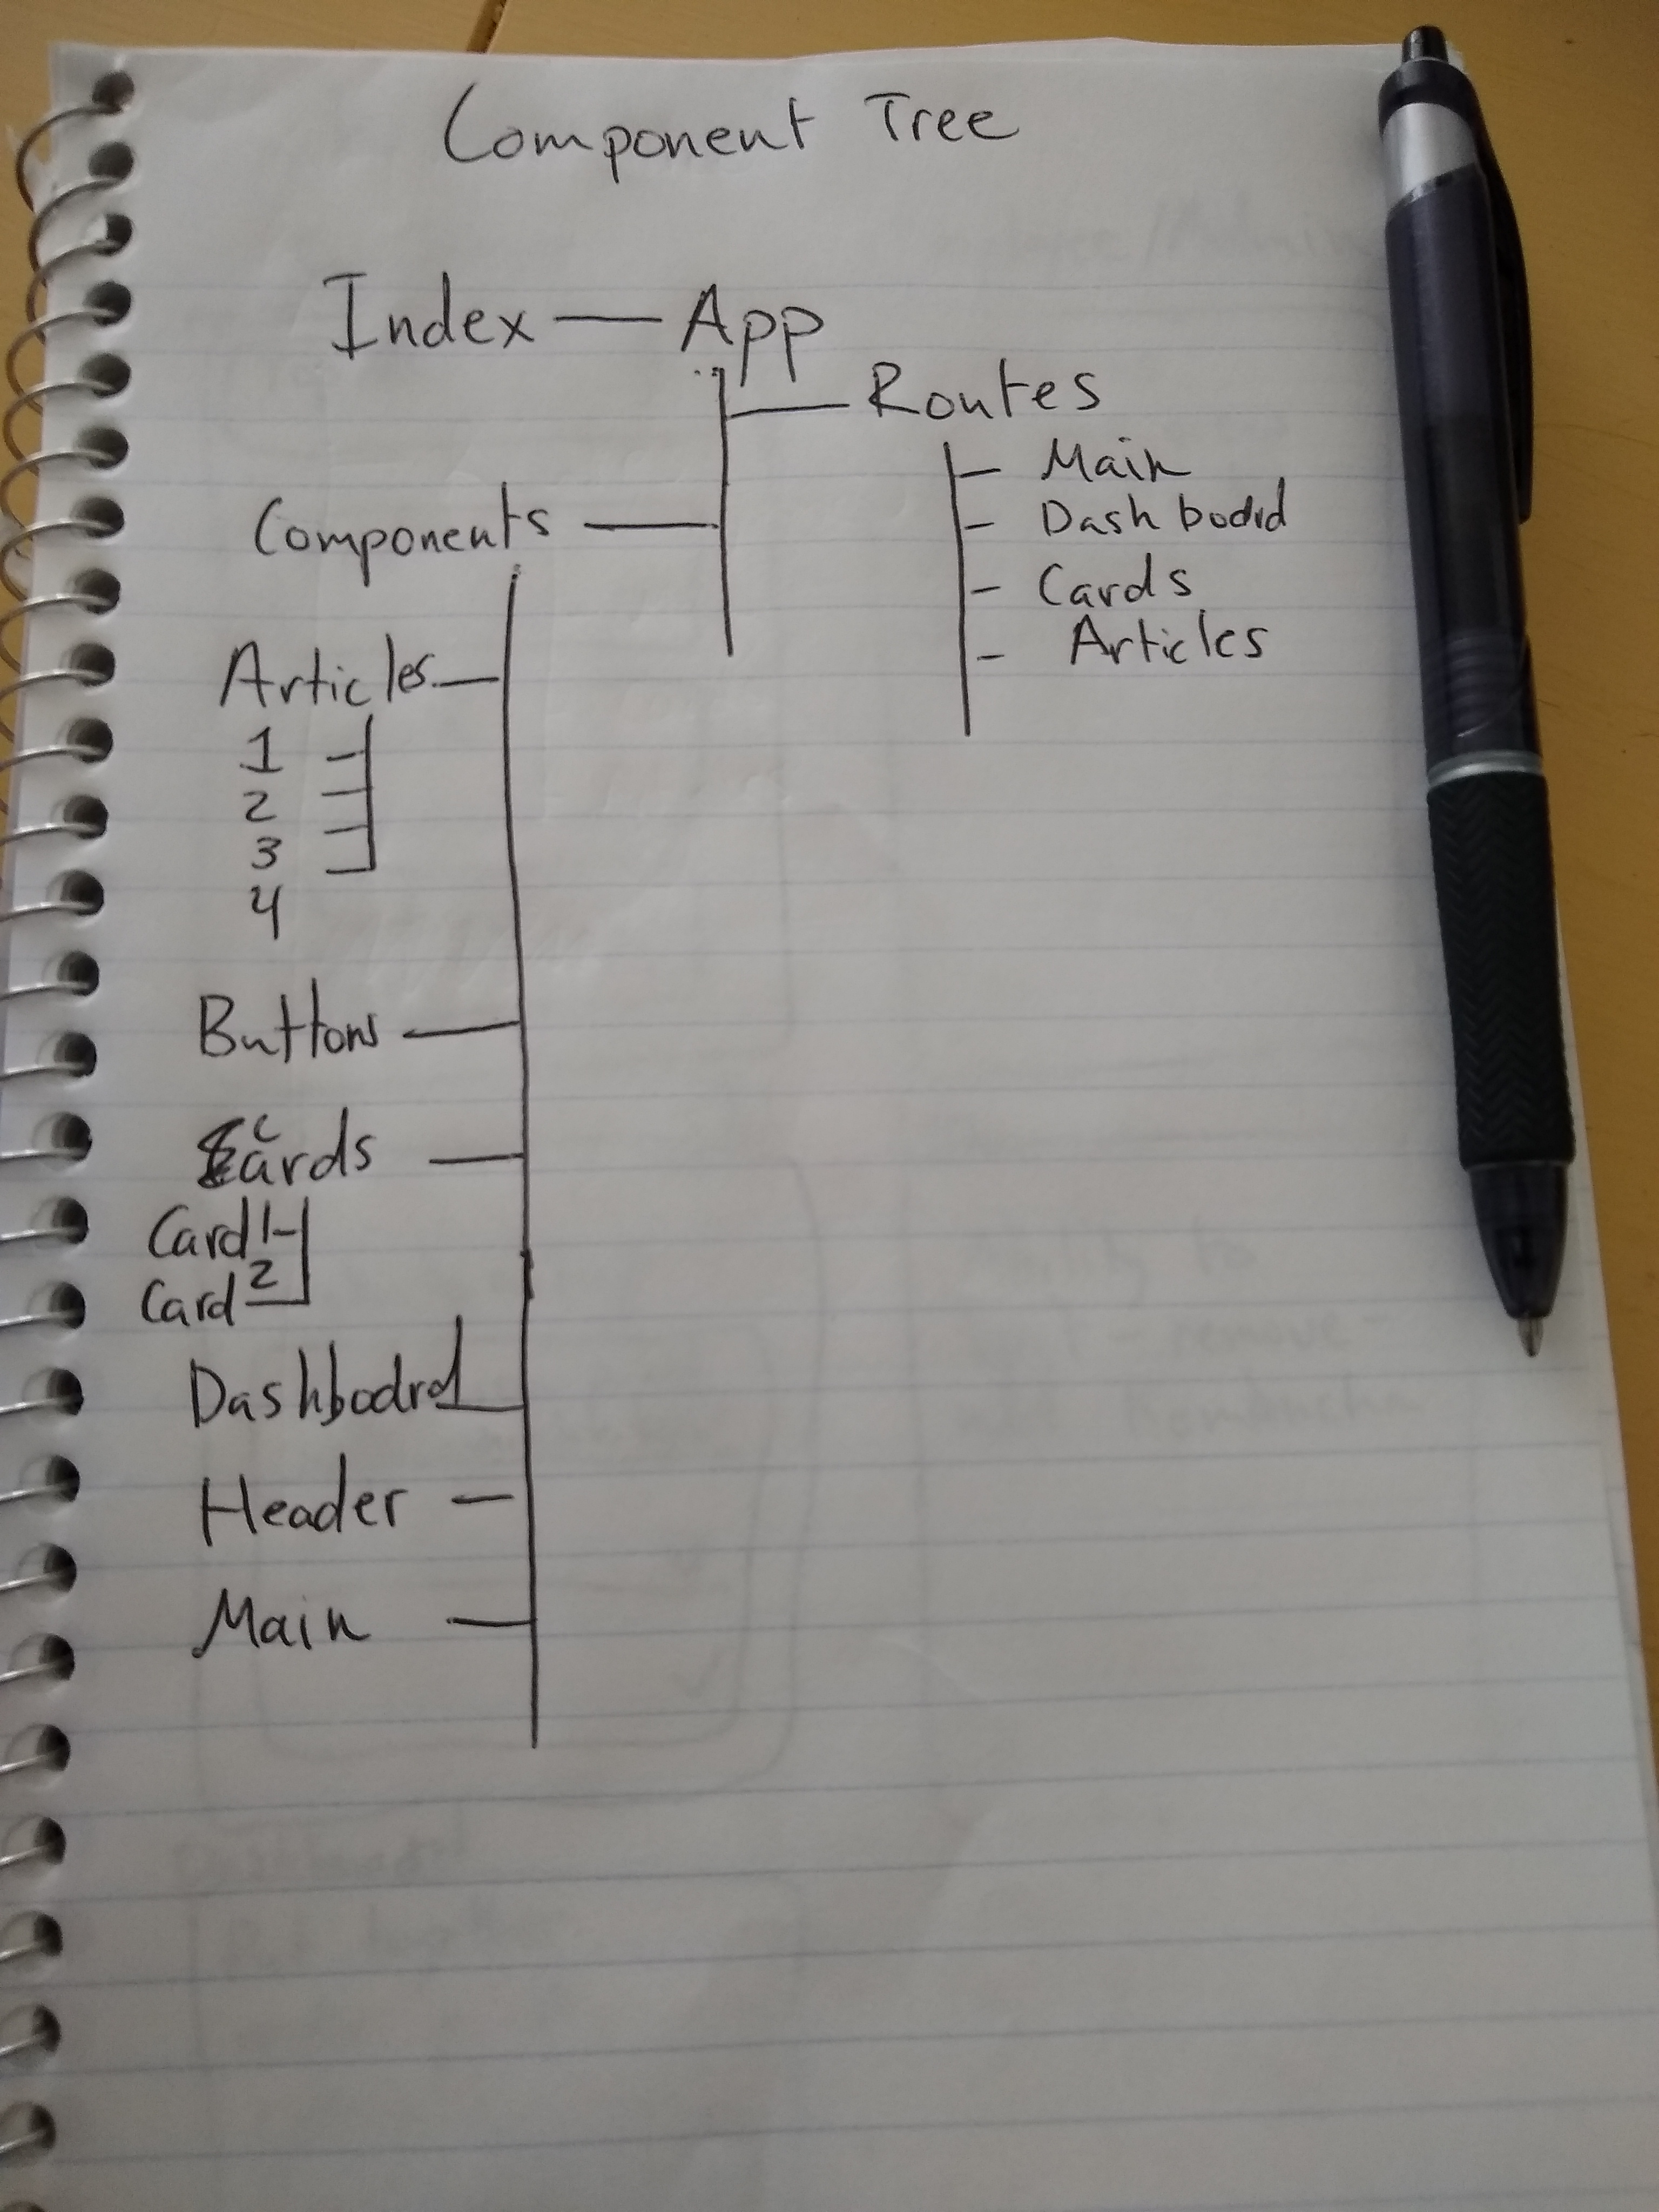 Component Tree
Index — App
Routes
Main
Dashboard
Cards
Articles
Components
Articles
1
2
3
4
Buttons
Cards
Card 1
Card 2
Dashboard
Header
Main